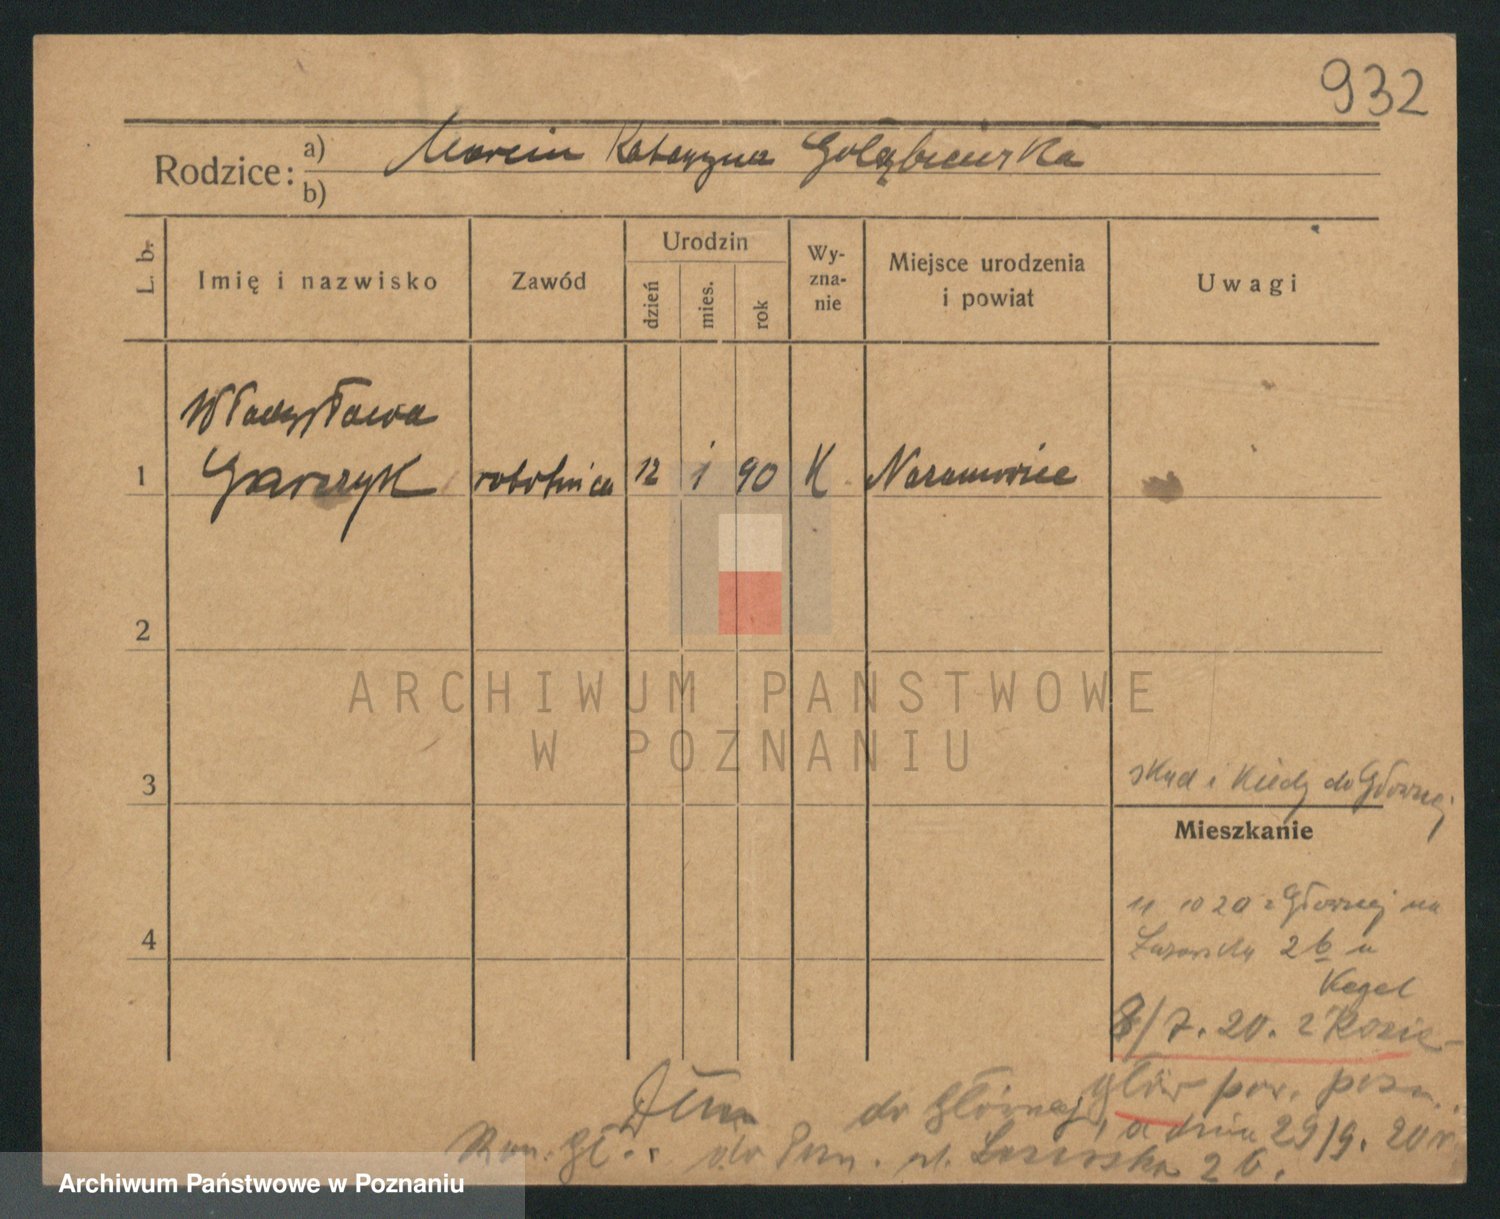 932
Rodzice: a) Marcin Katarzyna Gołąbiewska
b)
L. b.
Imię i nazwisko
Zawód
Urodzin
dzień
mies.
rok
Wy-
zna-
nie
Miejsce urodzenia
i powiat
Uwagi
Władysława
1 Garczyk robotnica 12 1 90 K Naramowice
2
ARCHIWUM PAŃSTWOWE
W POZNANIU
3
skąd i kiedy do Głównej
Mieszkanie
4
11 10 20 z Głównej na
2 b u
Kegel
8/7. 20. z Kozie-
głów pow. pozn.
do Głównej, a dnia 29/9. 20 r.
do Pozn. ul. 2 b.
Archiwum Państwowe w Poznaniu